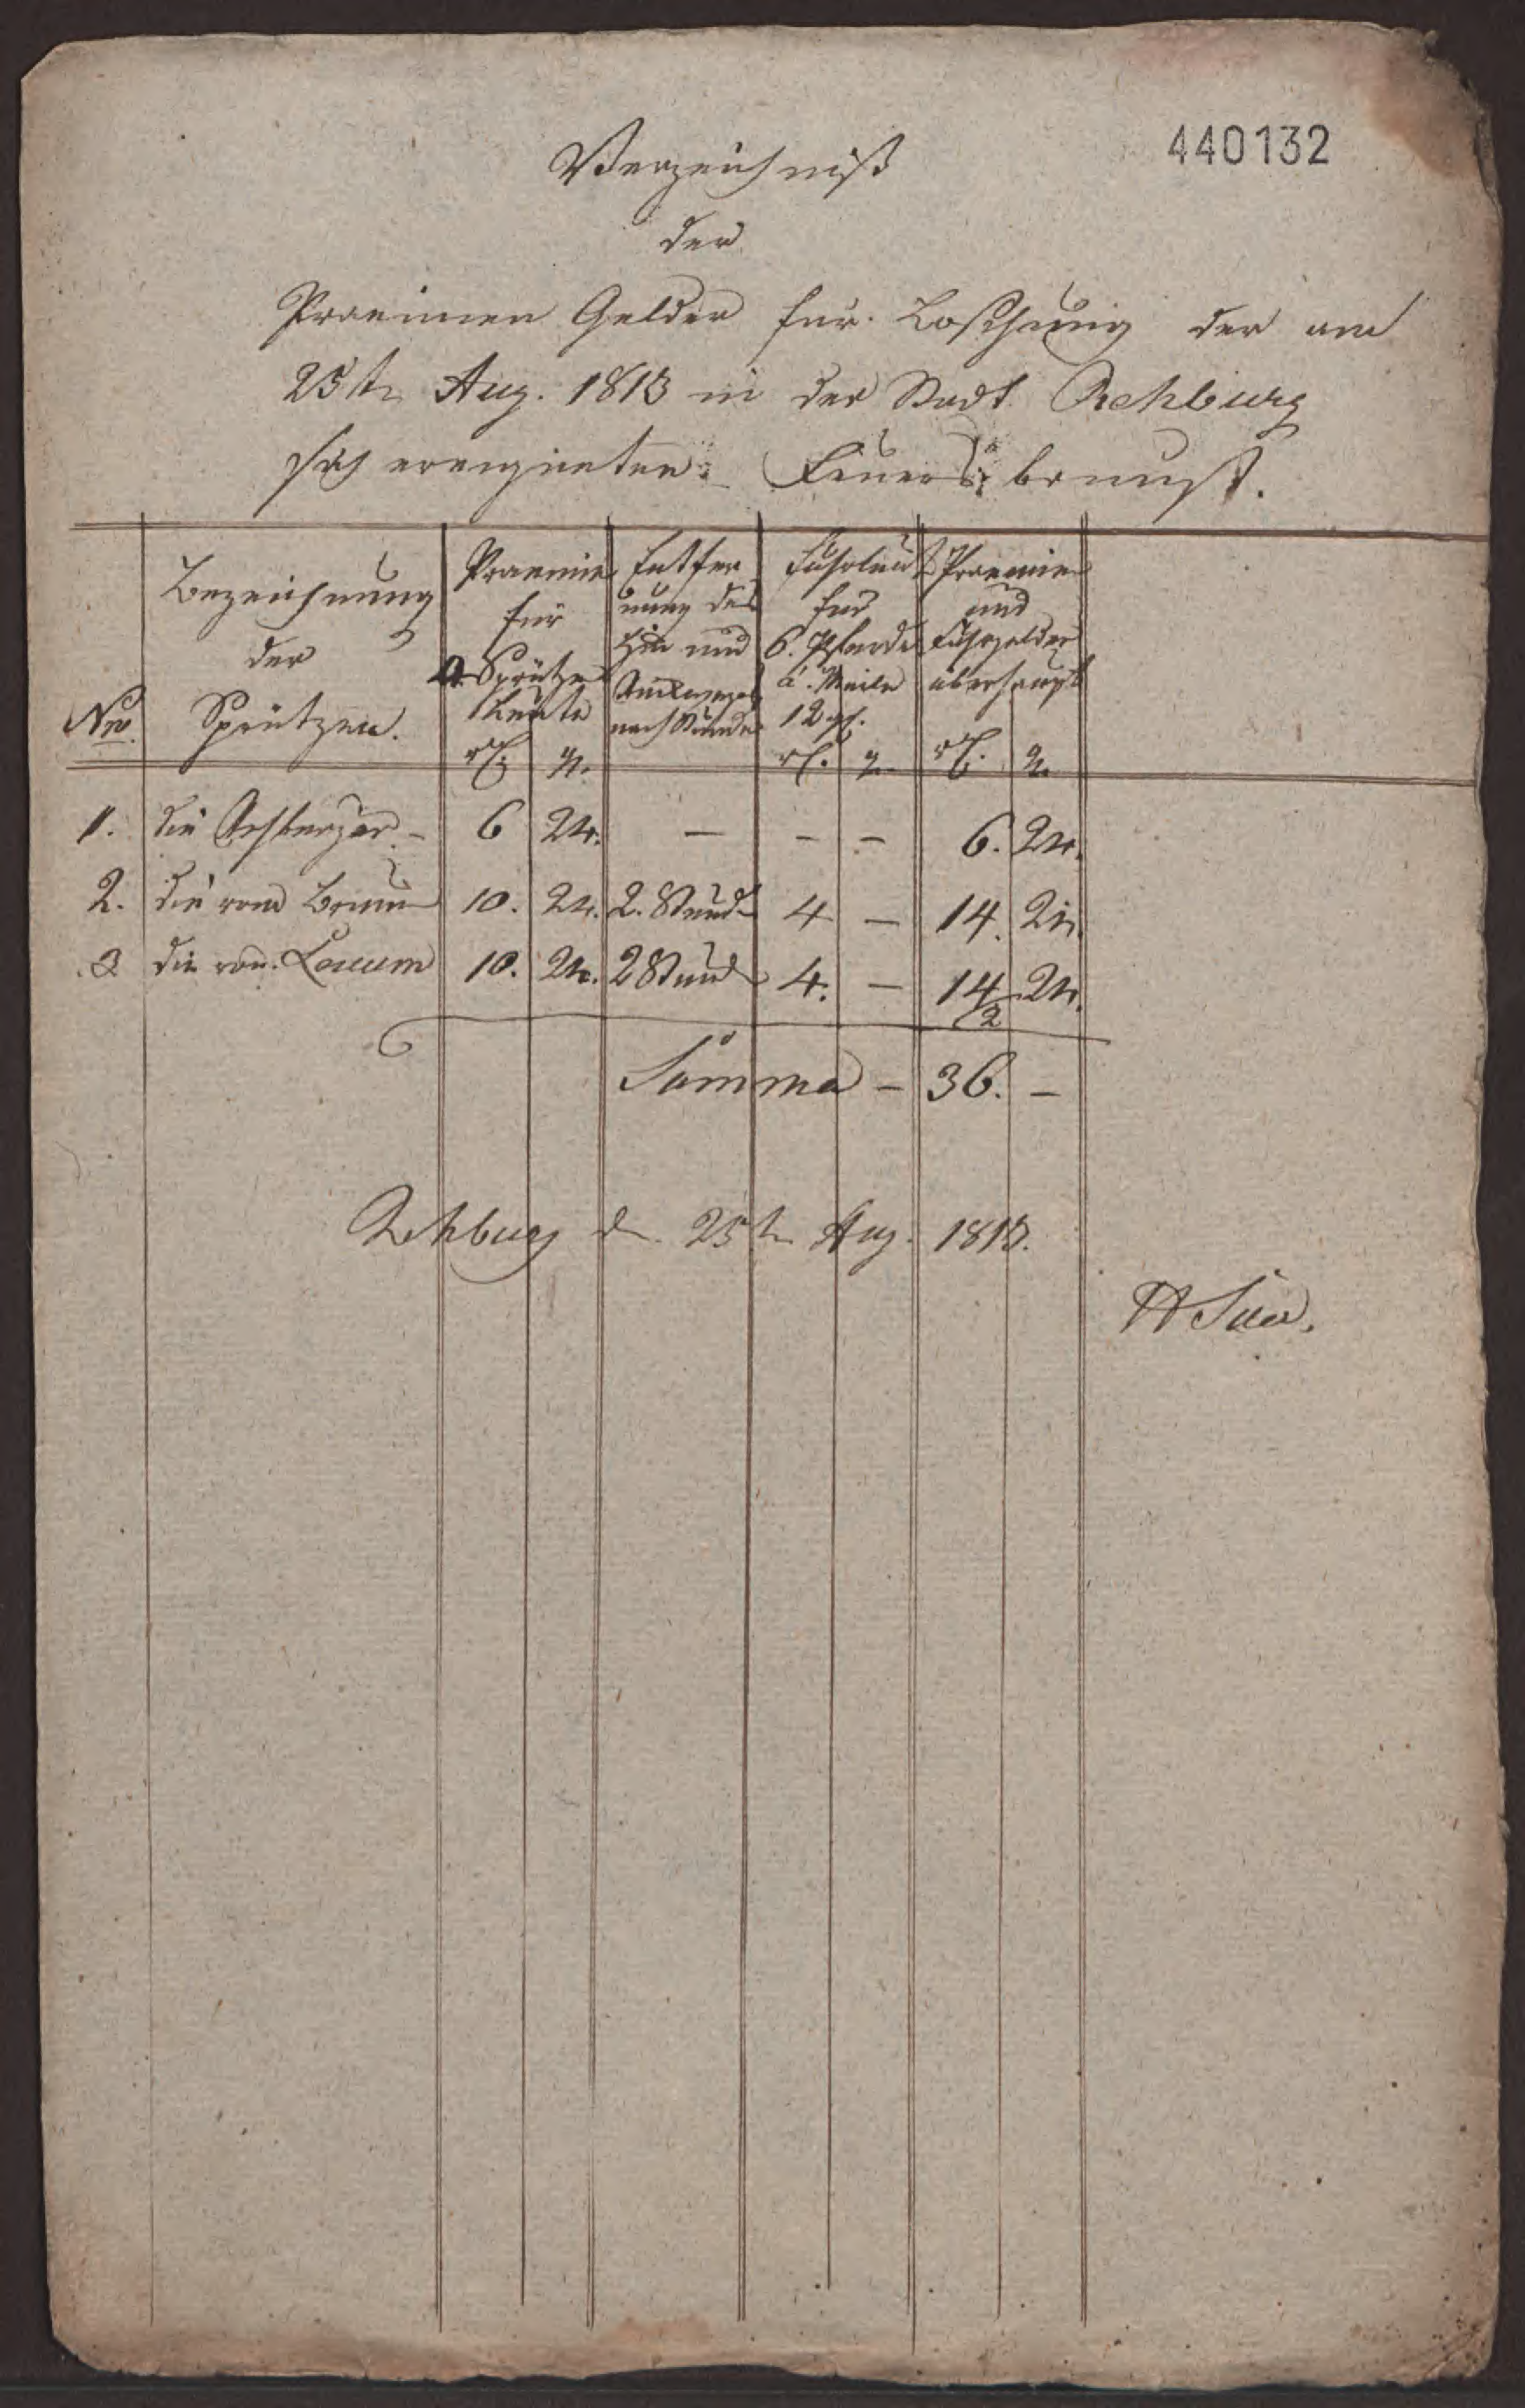 440132
Verzeichniß
der
Praemien Gelder für Loschung der am
25t Aug. 1813 in der Stadt Rehburg
sich ereigneten Feuersbrunst.
Nro. Bezeichnung der Sprützen.
Praemie für Sprütze Leute
Entfer nung des Hin und Rückweges nach Stunde
Fuhrlund für 6. Pferde a. Meile 12 gl.
Praemie und Fuhrgelder überhaupt
1. die Rehburger - 6 24. — - - 6. 24.
2. die vom Brunn 10. 24. 2. Stund 4 — 14. 24.
3 die von Loccum 10. 24. 2 Stund 4. — 14 24.
2
Summa - 36. -
Rehburg d. 25t Aug. 1813.